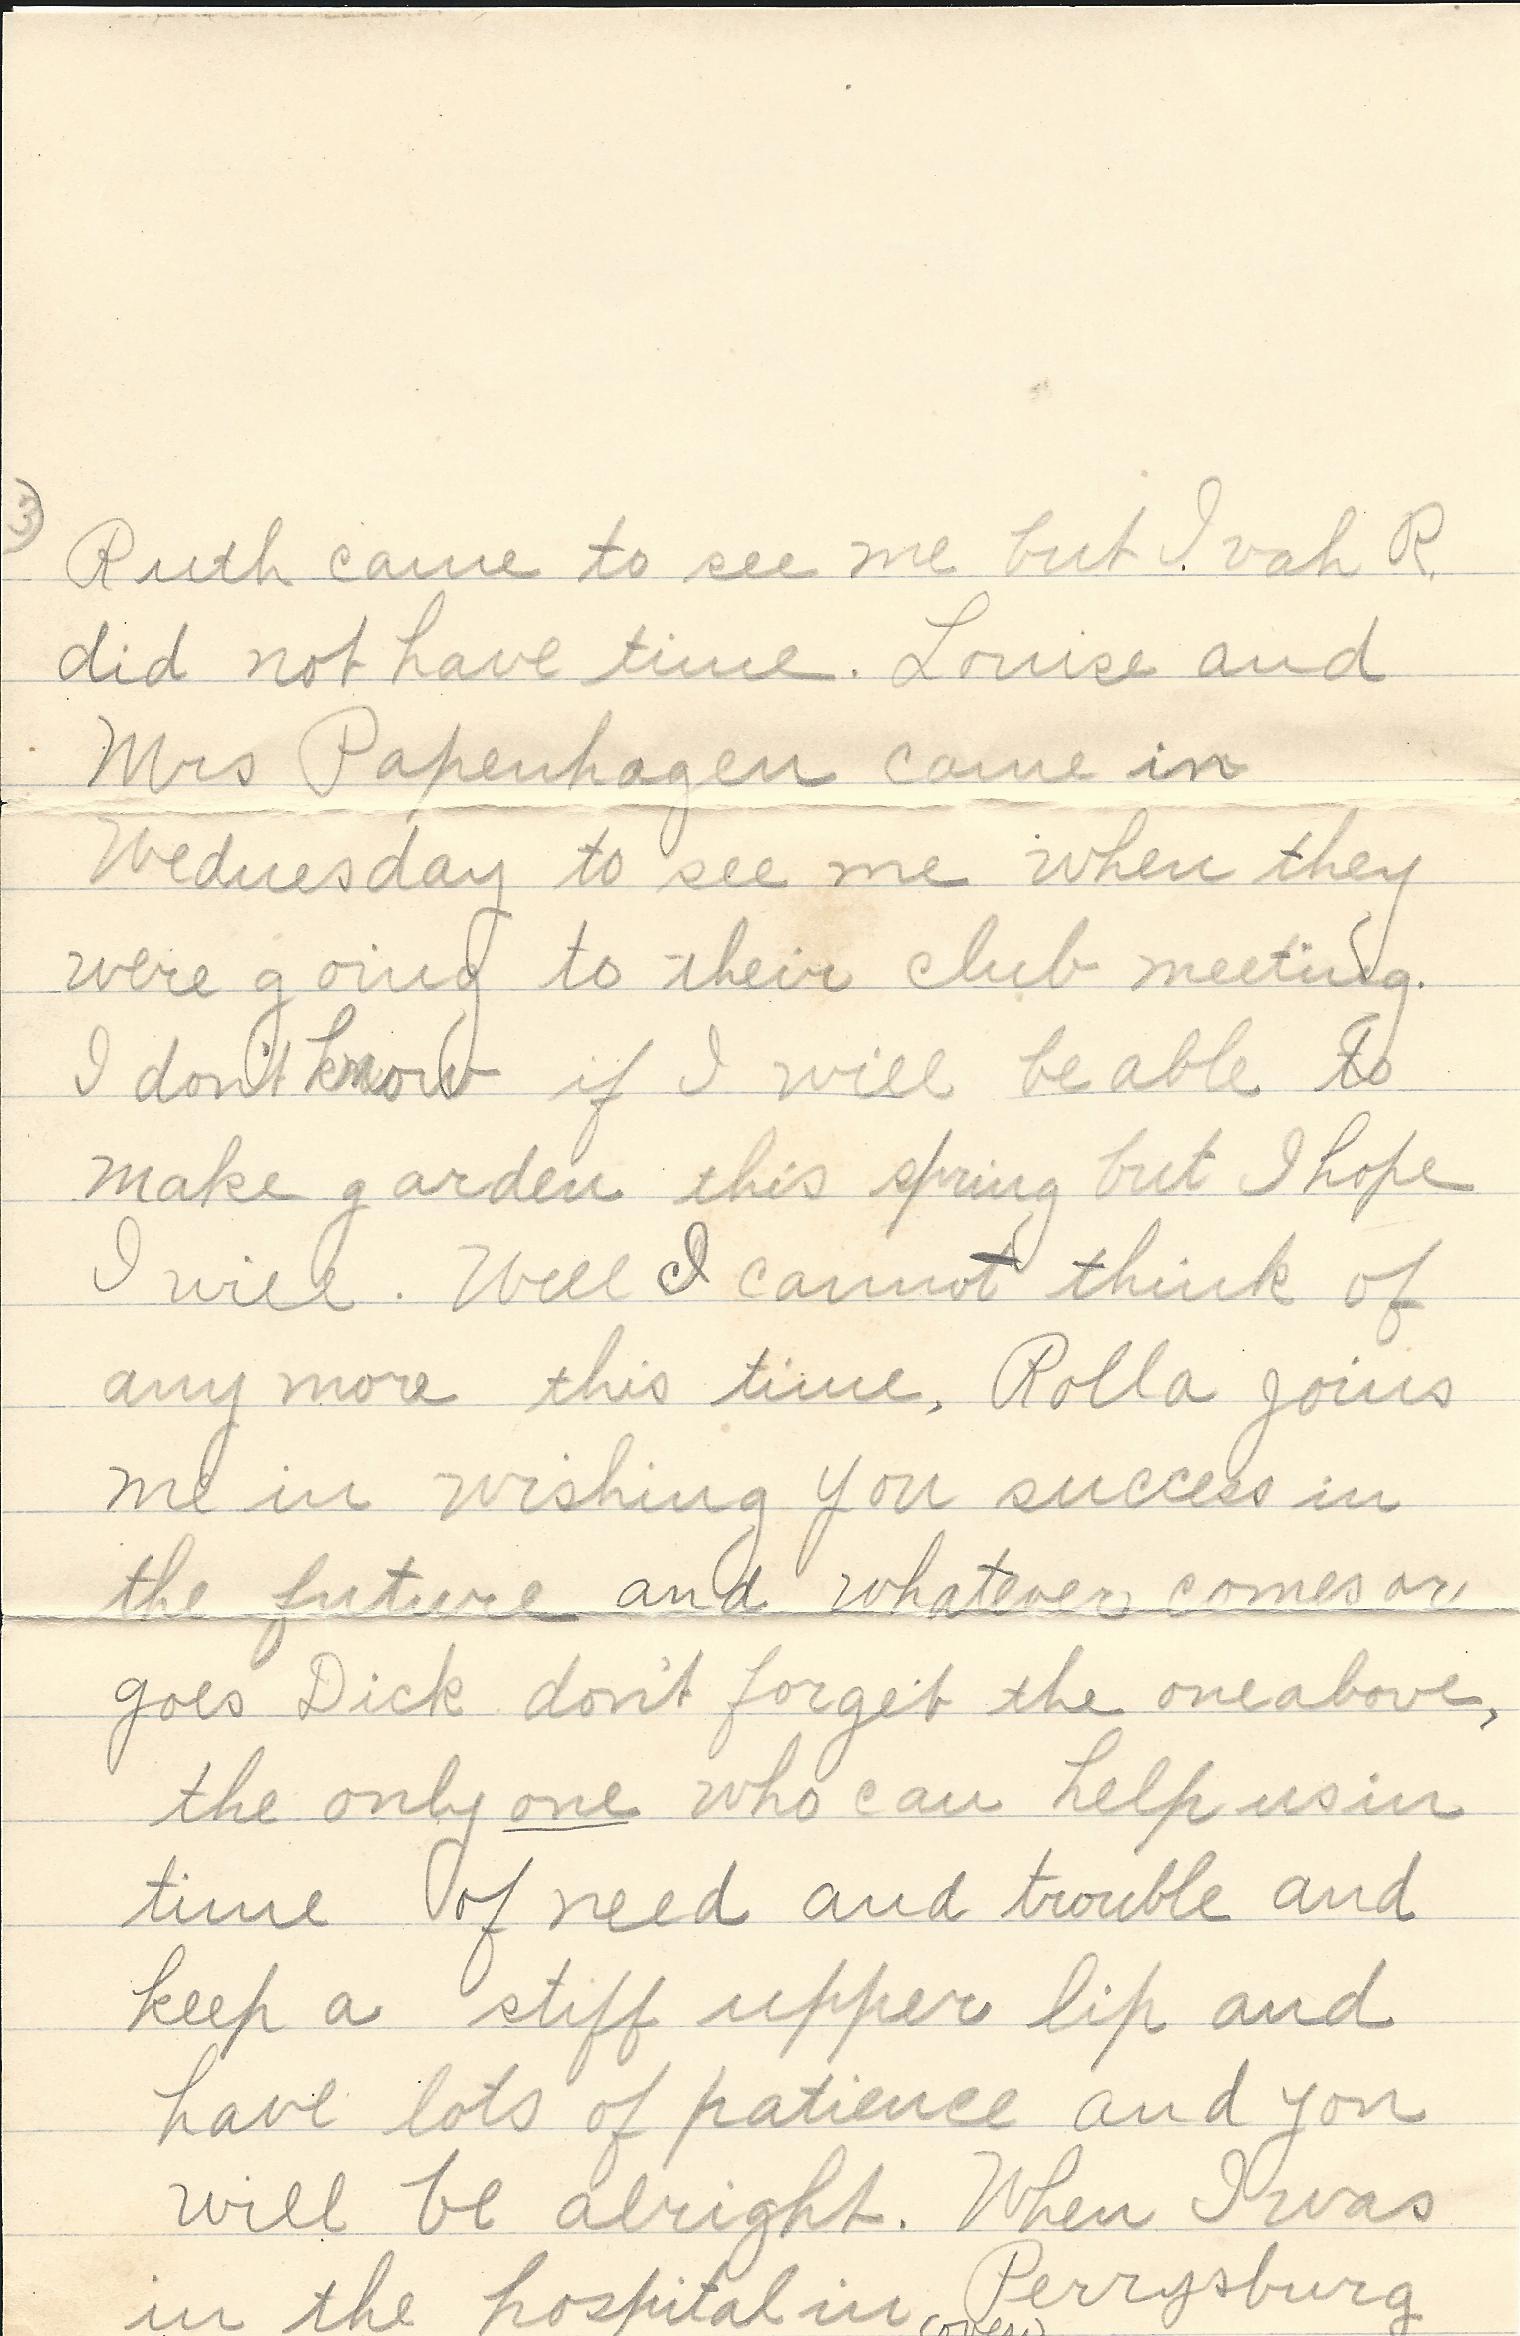 3)
Ruth came to see me but Ivah R.
did not have time. Louise and
Mrs Papenhagen came in
Wednesday to see me when they
were going to their club meeting.
I don't know if I will be able to
make garden this spring but I hope
I will. Well I cannot think of
any more this time, Rolla joins
me in wishing you success in
the future and whatever comes or
goes Dick don't forget the one above,
the only one who can help us in
time of need and trouble and
keep a stiff upper lip and
have lots of patience and you
will be alright. When I was
in the hospital in Perrysburg
(over)